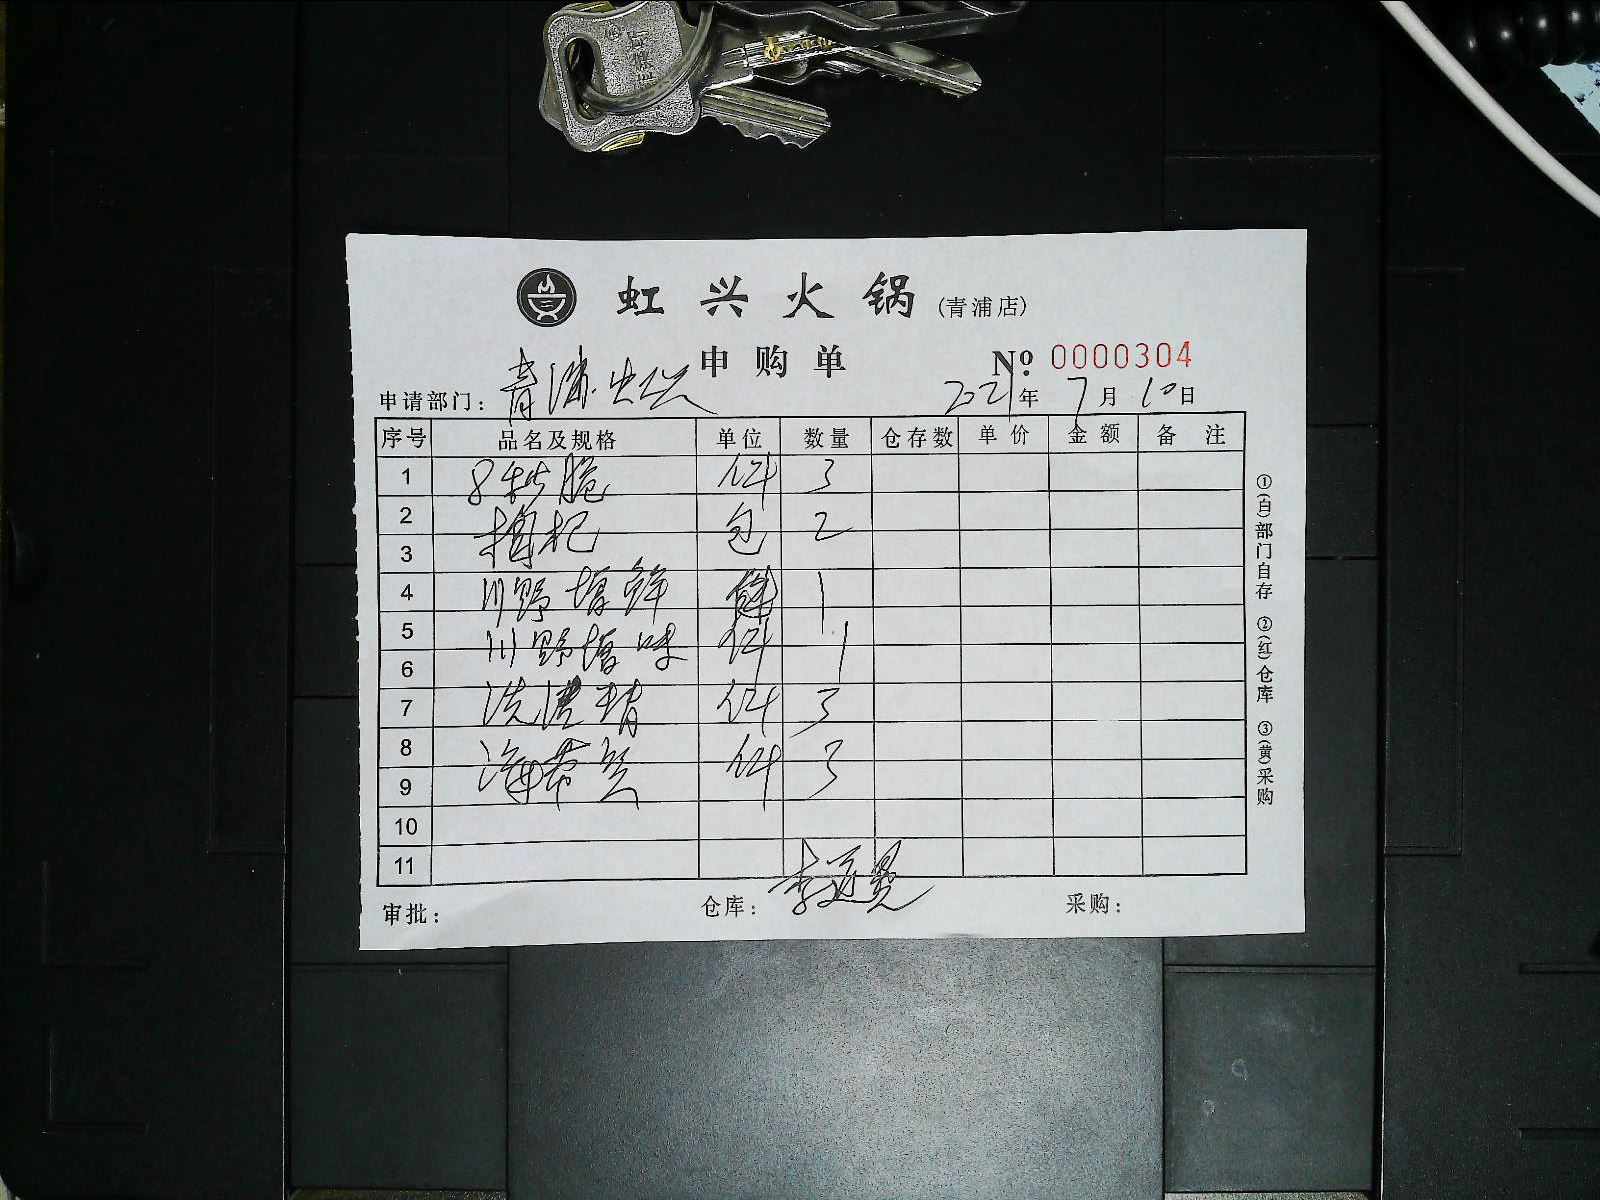 虹兴火锅(青浦店)
申购单 № 0000304
申请部门: 青浦 虹兴 2021年 7月 10日
序号 品名及规格 单位 数量 仓存数 单价 金额 备注
1 件 3
2 枸杞 包 2
3
4 川野增鲜 件 1
5 川野增味 件 1
6
7 洗洁精 件 3
8 海带丝 件 3
9
10
11
审批: 仓库: 采购:
①(白)部门自存 ②(红)仓库 ③(黄)采购